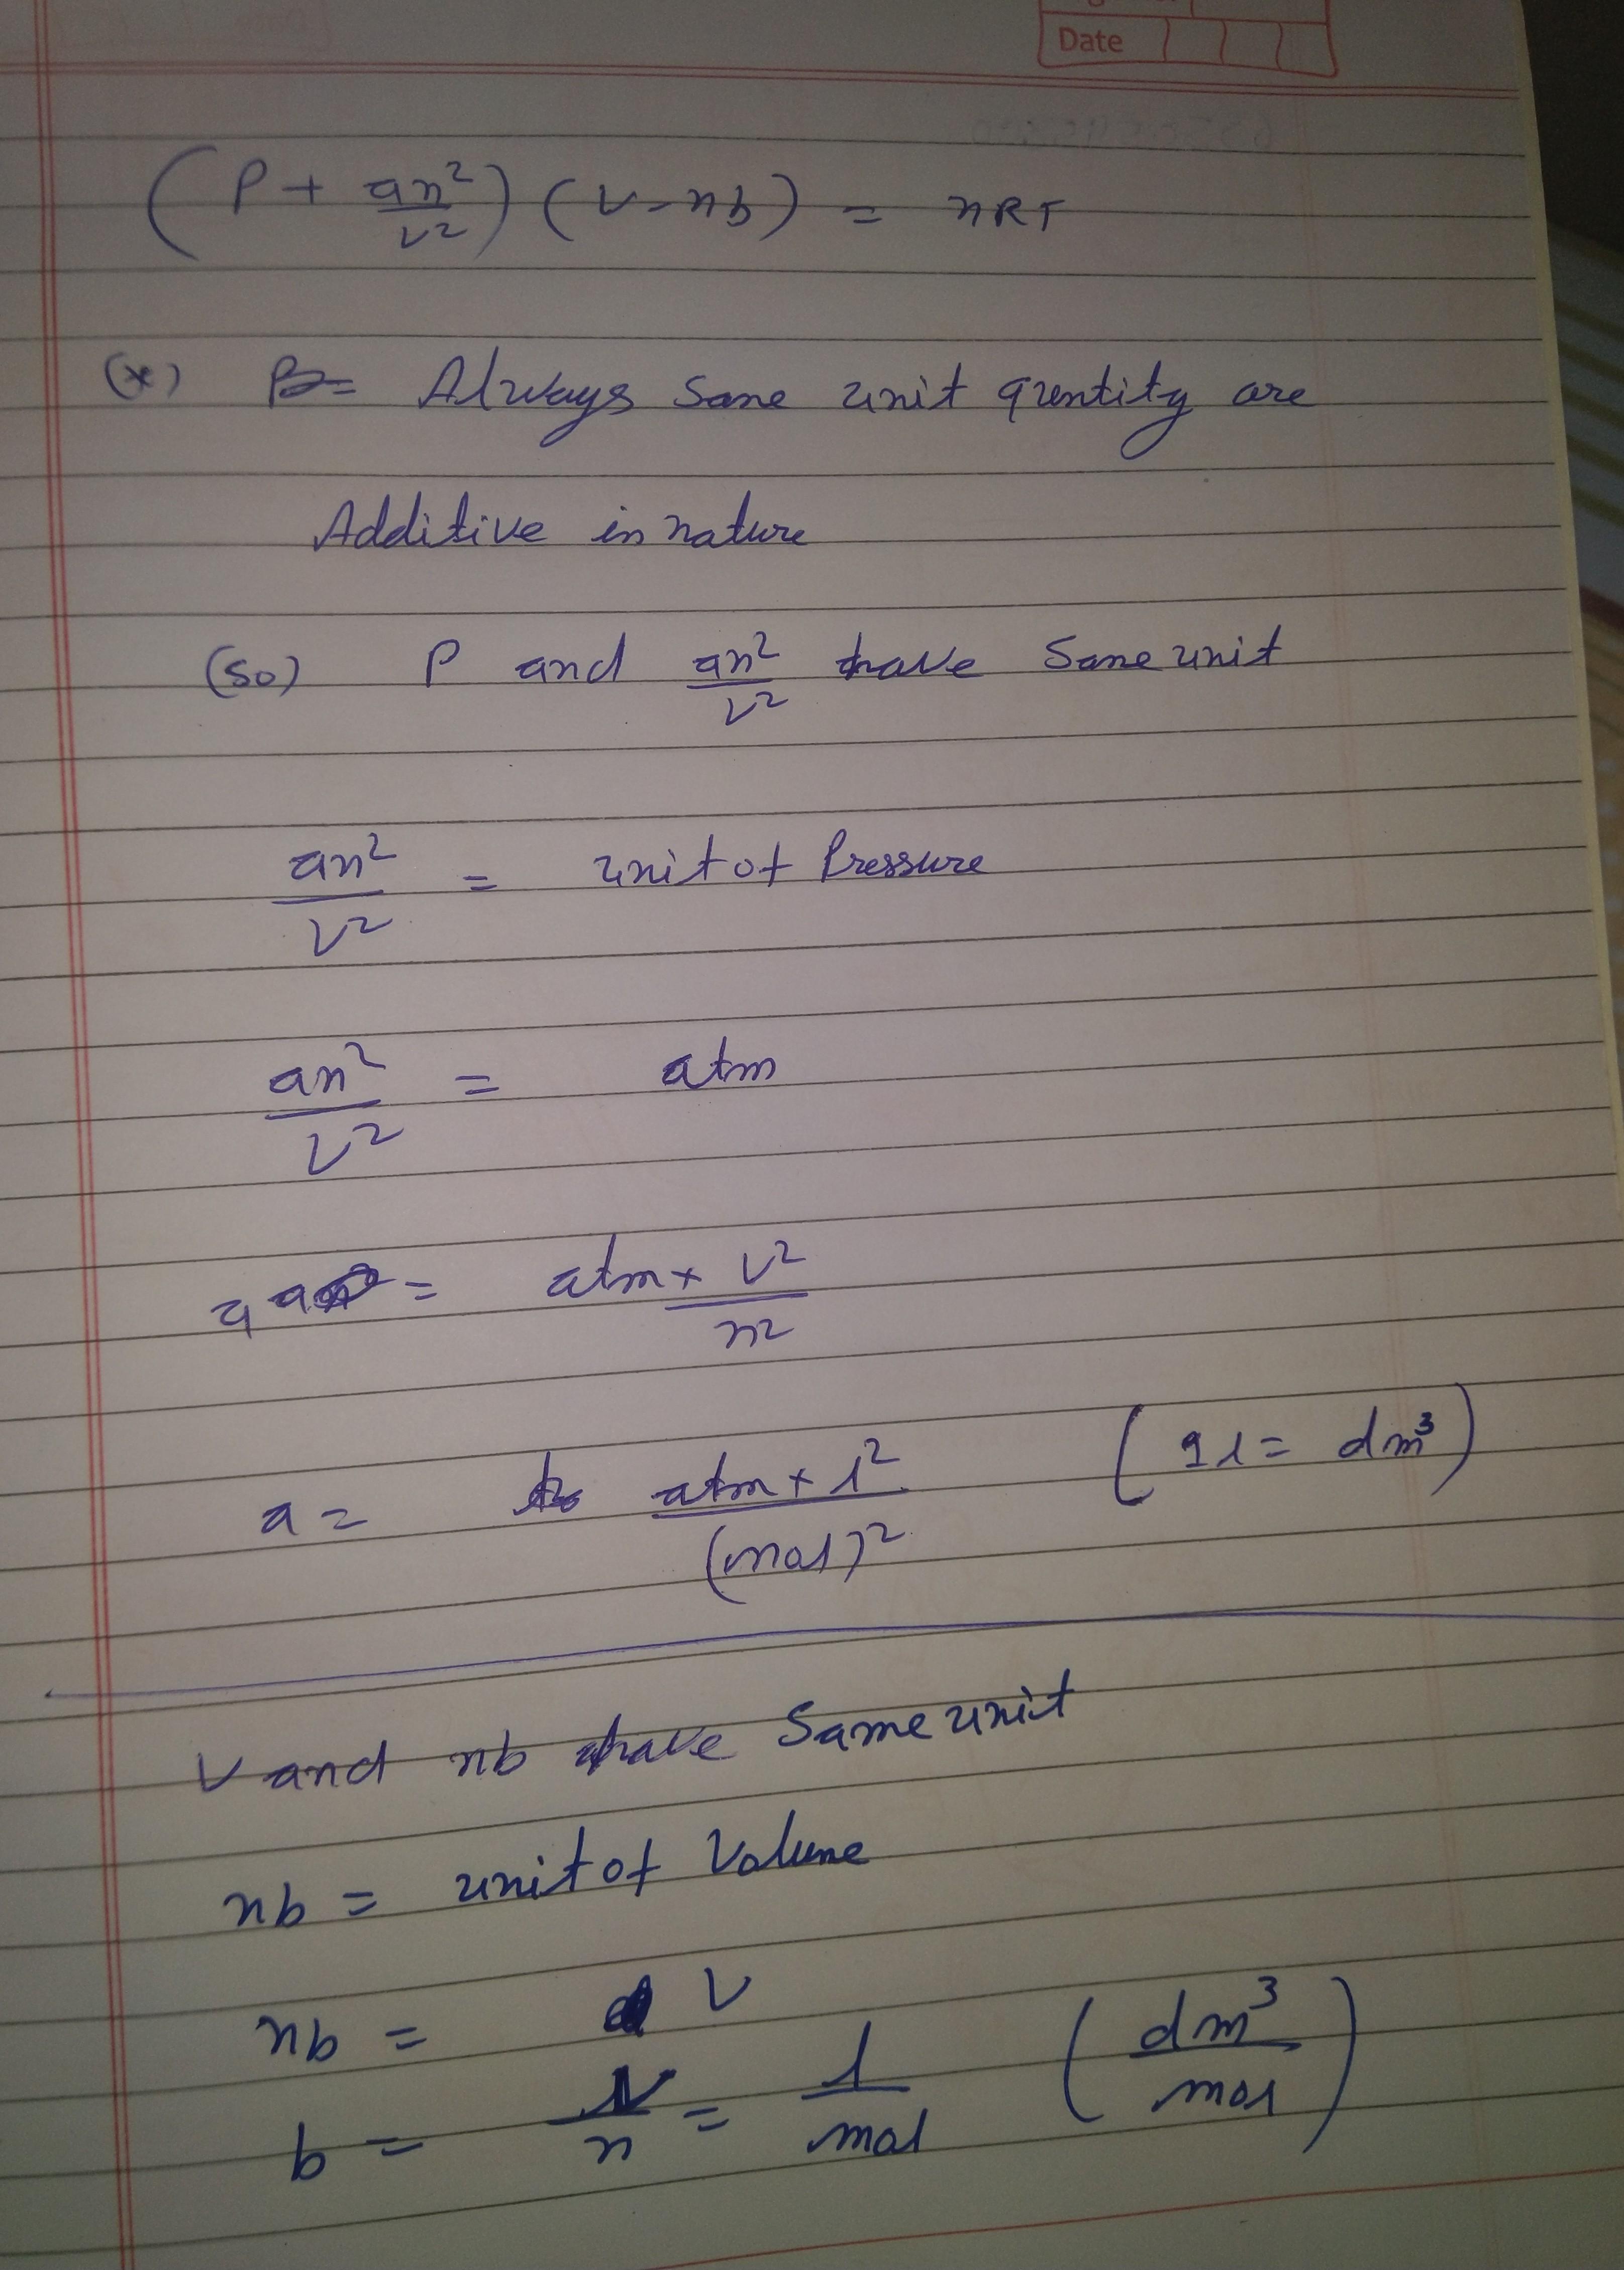 Date
(P + an²/V²) (V - nb) = nRT
(*) P= Always Same unit quentity are
Additive in nature
(So) P and an²/V² have Same unit
an²/V² = unit of Pressure
an²/V² = atm
a = atm × V²/n²
a = atm × l²/(mol)² (1l = dm³)
V and nb have Same unit
nb = unit of Volume
nb = V
b = V/n = l/mol (dm³/mol)